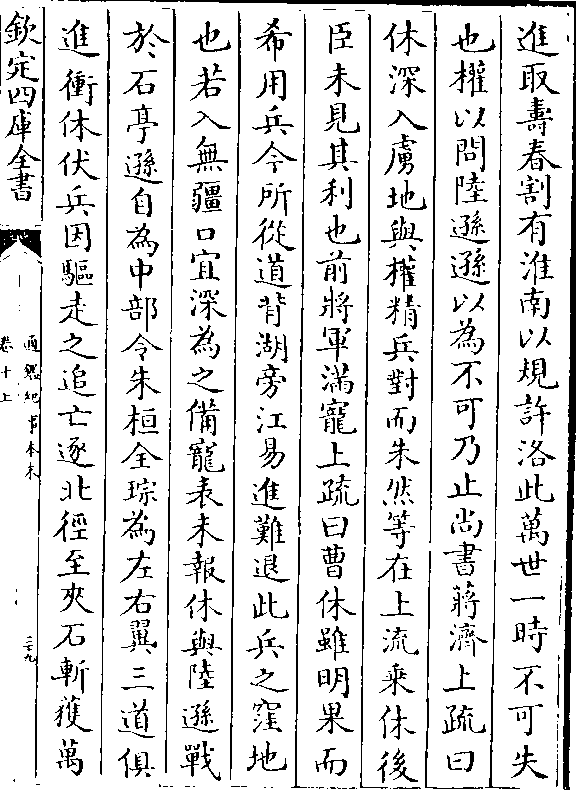 進取壽春割有淮南以規許洛此萬世一時不可失
也權以問陸遜遜以為不可乃止尚書蔣濟上疏曰
休深入虜地與權精兵對而朱然等在上流乗休後
臣未見其利也前將軍滿寵上疏曰曹休雖明果而
希用兵今所從道背湖旁江易進難退此兵之窪地
也若入無彊口宜深為之備寵表未報休與陸遜戰
於石亭遜自為中部令朱桓全琮為左右翼三道俱
進衝休伏兵因驅走之追亡逐北徑至夾石斬獲萬
欽定四庫全書
通鑑紀事本末
卷十上
二十九